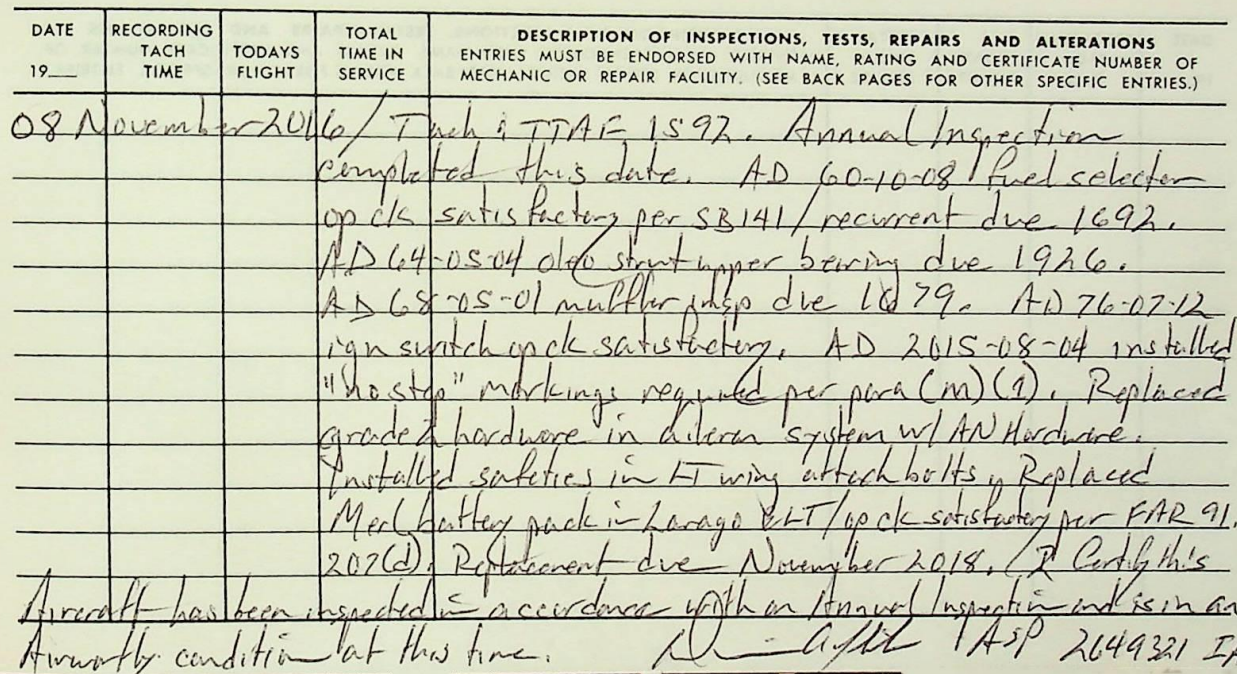 DATE RECORDING TODAYS TOTAL DESCRIPTION OF INSPECTIONS, TESTS, REPAIRS AND ALTERATIONS
TACH FLIGHT TIME IN ENTRIES MUST BE ENDORSED WITH NAME, RATING AND CERTIFICATE NUMBER OF
19___ TIME SERVICE MECHANIC OR REPAIR FACILITY. (SEE BACK PAGES FOR OTHER SPECIFIC ENTRIES.)
08 November 2016 / Tach & TTAF 1592. Annual Inspection
completed this date. AD 60-10-08 fuel selector
op ck satisfactory per SB141/recurrent due 1692.
AD 64-05-04 oleo strut upper bearing due 1926.
AD 68-05-01 muffler insp due 1679. AD 76-07-12
ign switch op ck satisfactory. AD 2015-08-04 installed
"no step" markings required per para (m)(1). Replaced
grade 2 hardware in aileron system w/ AN Hardware.
Installed safeties in LT wing attach bolts. Replaced
Merl battery pack in Larago ELT/op ck satisfactory per FAR 91.
207(d). Replacement due November 2018. I Certify this
Aircraft has been inspected in accordance with an Annual Inspection and is in an
Airworthy condition at this time. A&P 2649321 IA